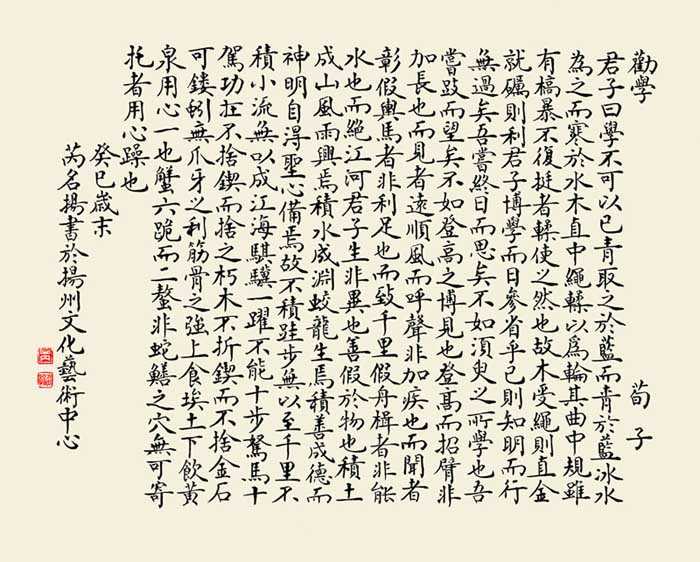 勸學 荀子
君子曰學不可以已青取之於藍而青於藍冰水
為之而寒於水木直中繩輮以爲輪其曲中規雖
有槁暴不復挺者輮使之然也故木受繩則直金
就礪則利君子博學而日參省乎己則知明而行
無過矣吾嘗終日而思矣不如須臾之所學也吾
嘗跂而望矣不如登高之博見也登高而招臂非
加長也而見者遠順風而呼聲非加疾也而聞者
彰假輿馬者非利足也而致千里假舟楫者非能
水也而絕江河君子生非異也善假於物也積土
成山風雨興焉積水成淵蛟龍生焉積善成德而
神明自得聖心備焉故不積跬步無以至千里不
積小流無以成江海騏驥一躍不能十步駑馬十
駕功在不捨鍥而捨之朽木不折鍥而不捨金石
可鏤蚓無爪牙之利筋骨之強上食埃土下飲黃
泉用心一也蟹六跪而二螯非蛇鱔之穴無可寄
托者用心躁也
癸巳歲末
芮名揚書於揚州文化藝術中心